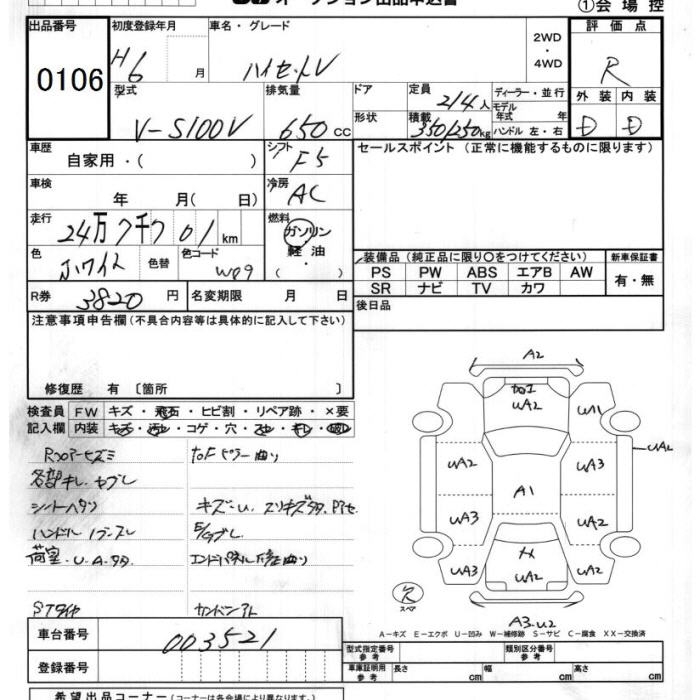 オークション出品申込書
①会場控
出品番号
0106
初度登録年月
H6 月
車名・グレード
ハイゼットV
2WD・4WD
評価点
R
外装 内装
D D
型式
V-S100V
排気量
650cc
ドア
形状
定員
2/4人
積載
350/250kg
ディーラー・並行
モデル年式 年
ハンドル 左・右
車歴
自家用・( )
シフト
F5
セールスポイント (正常に機能するものに限ります)
車検
年 月( 日)
冷房
AC
走行
24万7千701km
燃料
ガソリン・軽油・
色
Jホワイト
色替
色コード
W09
装備品 (純正品に限り○をつけてください)
PS PW ABS エアB AW
SR ナビ TV カワ
新車保証書
有・無
R券
3820円
名変期限 月 日
後日品
注意事項申告欄 (不具合内容等は具体的に記入して下さい)
修復歴 有 〔箇所 〕
検査員記入欄
FW キズ・飛石・ヒビ割・リペア跡・×要
内装 キズ・汚レ・コゲ・穴・スレ・キレ・
各部キレ.セブレ
シートヘタリ
キズ・U.
荷室・U.A.
STタイヤ
A2
加工
UA2
UA1
UA2
UA3
UA2
A1
UA3
UA2
UA3
UA2
UA2
A3.U2
スペア
A-キズ E-エクボ U-凹み W-補修跡 S-サビ C-腐食 XX-交換済
車台番号
003521
登録番号
型式指定番号 参考
類別区分番号 参考
車庫証明用 参考 長さ cm 幅 cm 高さ cm
希望出品コーナー (コーナーは各会場により異なります)